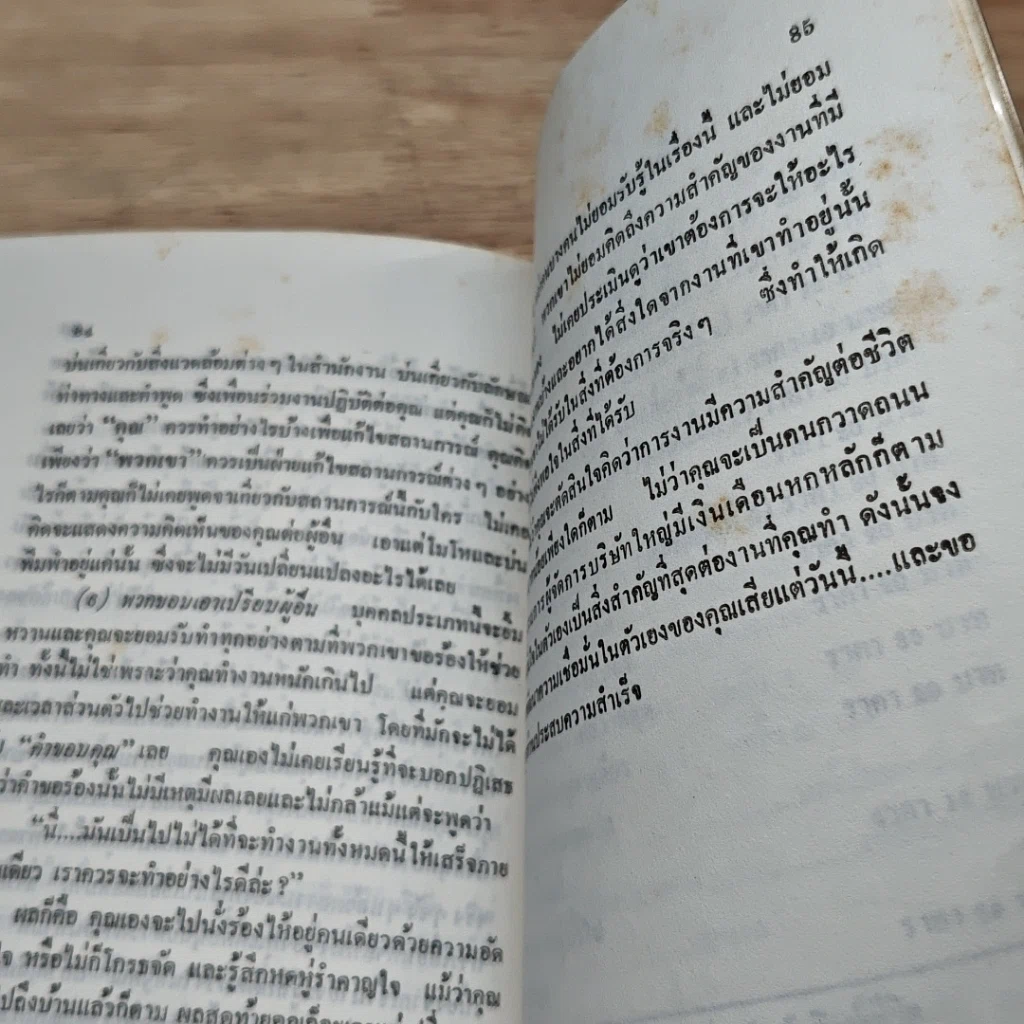 บ่นเกี่ยวกับสิ่งแวดล้อมต่างๆ ในสำนักงาน บ่นเกี่ยวกับลักษณ
ท่าทางและคำพูด ซึ่งเพื่อนร่วมงานปฏิบัติต่อคุณ แต่คุณก็ไม่คิด
เลยว่า “คุณ” ควรทำอย่างไรบ้างเพื่อแก้ไขสถานการณ์ คุณคิด
เพียงว่า “พวกเขา” ควรเป็นฝ่ายแก้ไขสถานการณ์ต่างๆ อย่าง
ไรก็ตามคุณก็ไม่เคยพูดจาเกี่ยวกับสถานการณ์นี้กับใคร ไม่เคย
คิดจะแสดงความคิดเห็นของคุณต่อผู้อื่น เอาแต่โมโหและบ่น
พึมพำอยู่แค่นั้น ซึ่งจะไม่มีวันเปลี่ยนแปลงอะไรได้เลย
พวกชอบเอาเปรียบผู้อื่น บุคคลประเภทนี้จะยิ้ม
หวานและคุณจะยอมรับทำทุกอย่างตามที่พวกเขาขอร้องให้ช่วย
ทำ ทั้งนี้ไม่ใช่เพราะว่าคุณทำงานหนักเกินไป แต่คุณจะยอม
และเวลาส่วนตัวไปช่วยทำงานให้แก่พวกเขา โดยที่มักจะไม่ได้
“คำขอบคุณ” เลย คุณเองไม่เคยเรียนรู้ที่จะบอกปฏิเสธ
ว่าคำขอร้องนั้นไม่มีเหตุมีผลเลยและไม่กล้าแม้แต่จะพูดว่า
“นี่....มันเป็นไปไม่ได้ที่จะทำงานทั้งหมดนี้ให้เสร็จภาย
เดียว เราควรจะทำอย่างไรดีล่ะ ?”
ผลก็คือ คุณเองจะไปนั่งร้องไห้อยู่คนเดียวด้วยความอัด
ใจ หรือไม่ก็โกรธจัด และรู้สึกหดหู่รำคาญใจ แม้ว่าคุณ
ไปถึงบ้านแล้วก็ตาม ผลสุดท้ายคุณก็จะ
85
บางคนไม่ยอมรับรู้ในเรื่องนี้ และไม่ยอม
พวกเขาไม่ยอมคิดถึงความสำคัญของงานที่มี
ไม่เคยประเมินดูว่าเขาต้องการจะให้อะไร
และอยากได้สิ่งใดจากงานที่เขาทำอยู่นั้น
ได้รับในสิ่งที่ต้องการจริงๆ ซึ่งทำให้เกิด
พอใจในสิ่งที่ได้รับ
คุณจะตัดสินใจคิดว่าการงานมีความสำคัญต่อชีวิต
เพียงใดก็ตาม ไม่ว่าคุณจะเป็นคนกวาดถนน
ผู้จัดการบริษัทใหญ่มีเงินเดือนหกหลักก็ตาม
ในตัวเองเป็นสิ่งสำคัญที่สุดต่องานที่คุณทำ ดังนั้นจง
ความเชื่อมั่นในตัวเองของคุณเสียแต่วันนี้....และขอ
ประสบความสำเร็จ